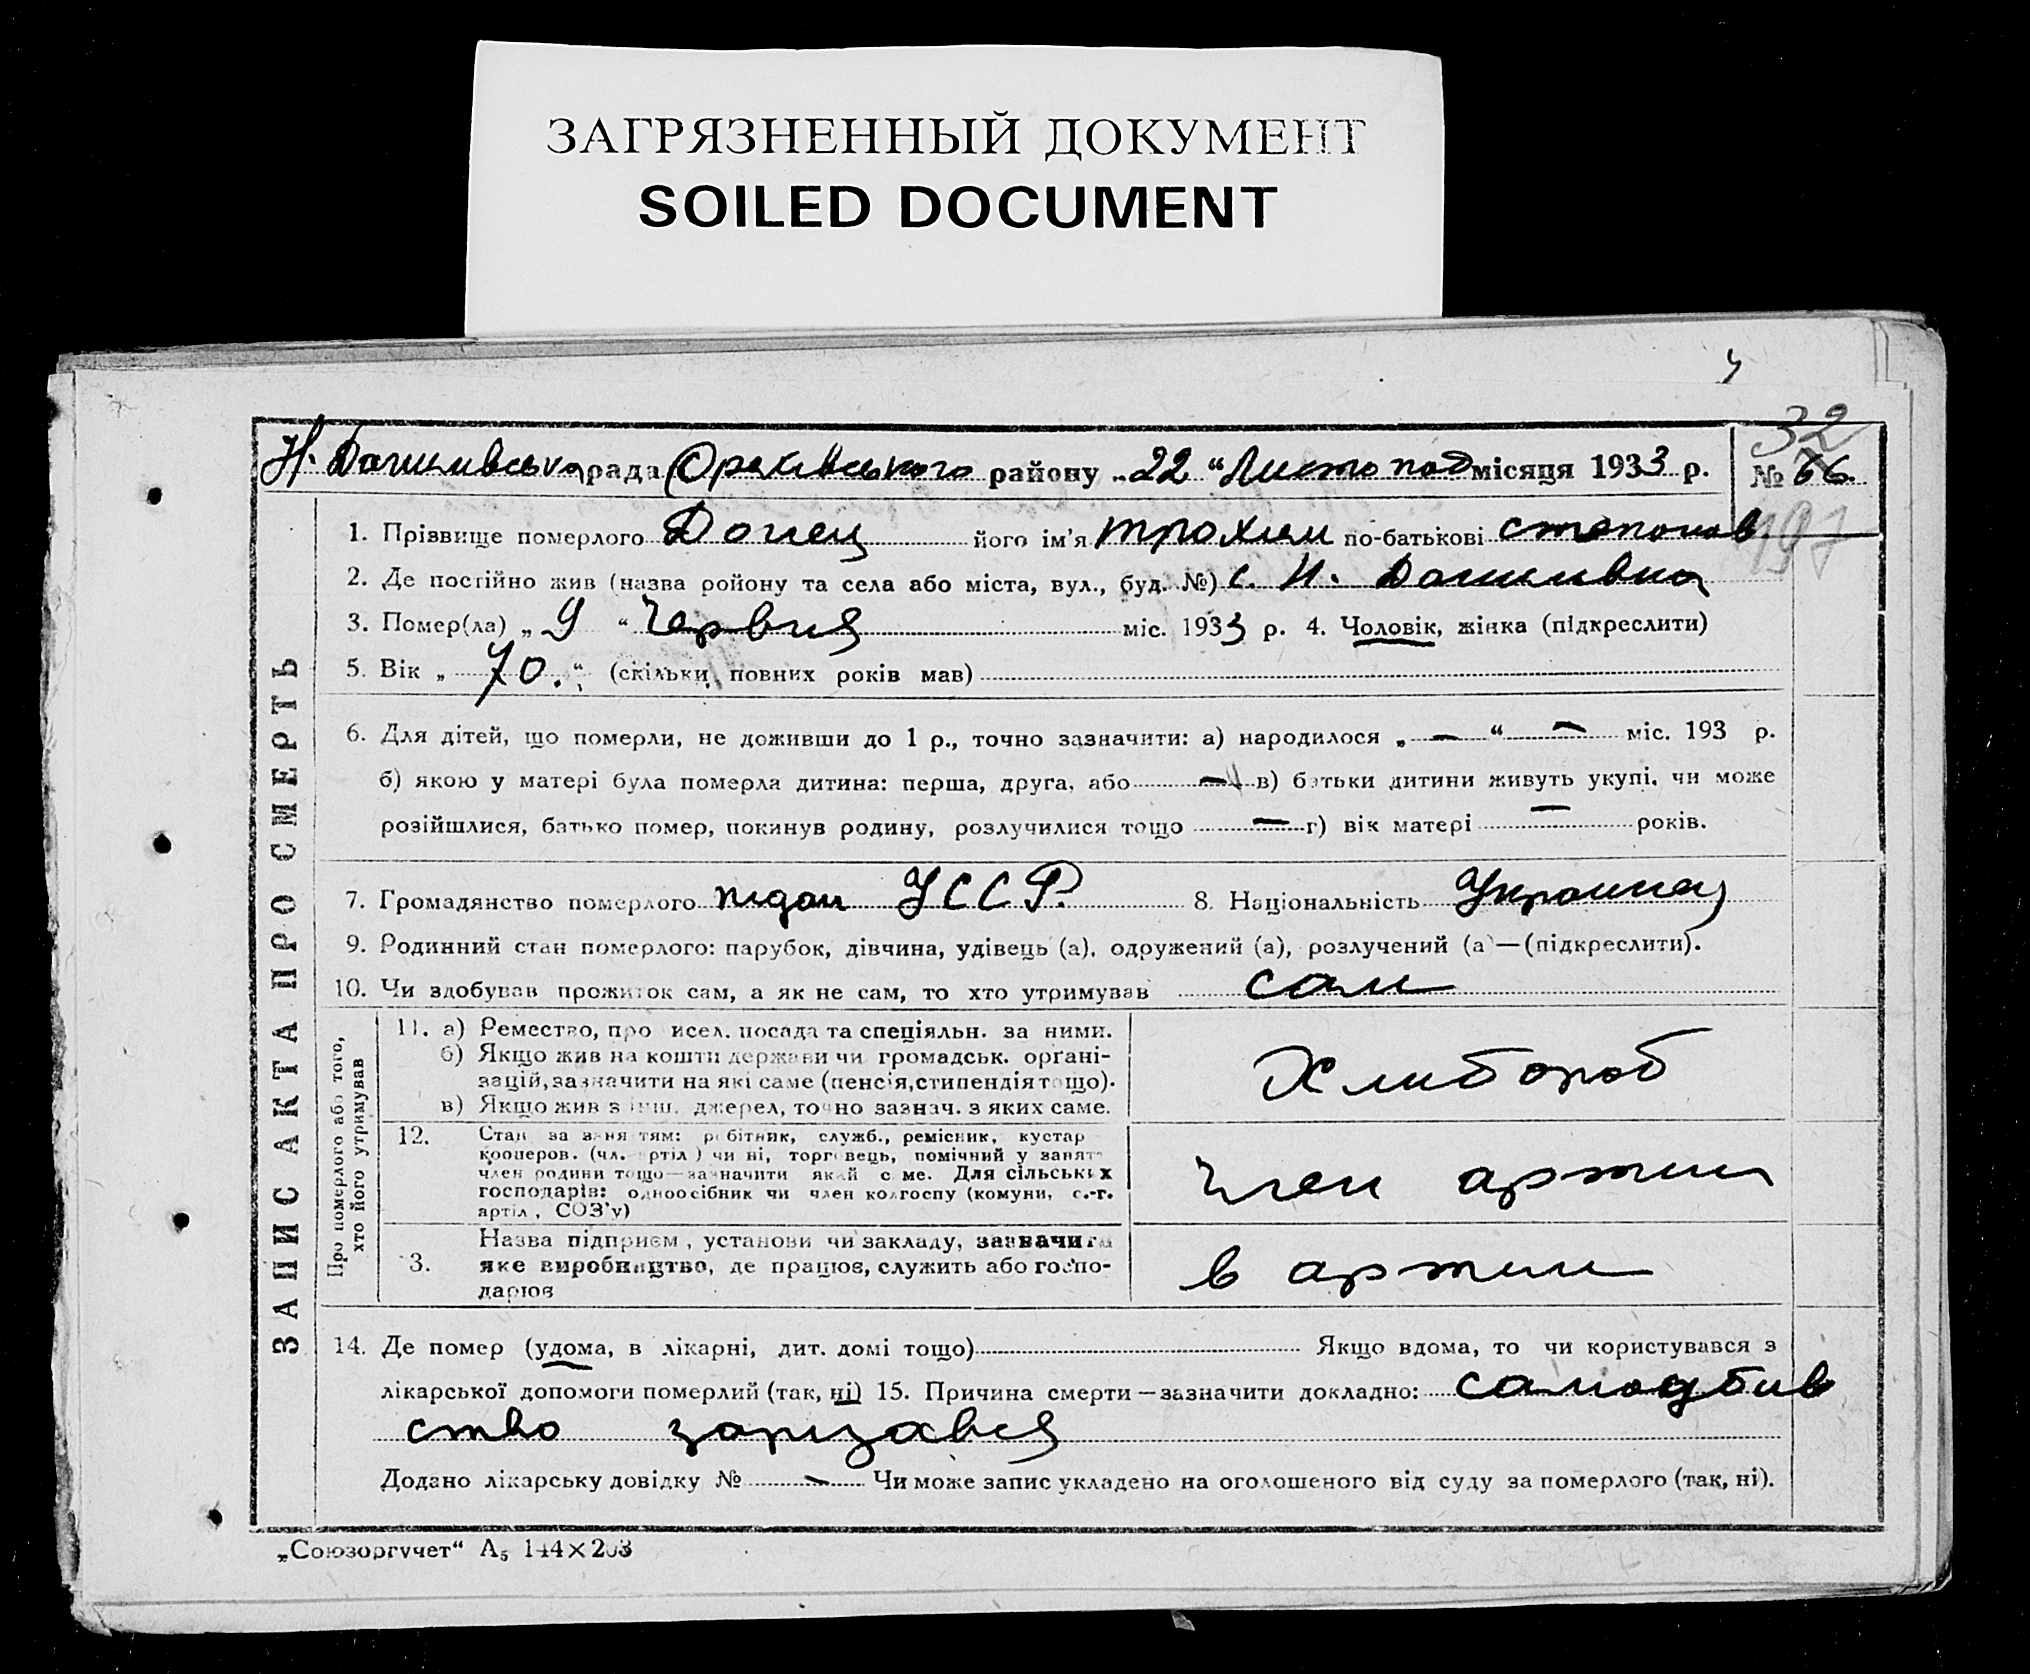 ЗАГРЯЗНЕННЫЙ ДОКУМЕНТ
SOILED DOCUMENT
32
Н. Данилівська рада Оріхівського району „22“ Листопад місяця 1933 р. № 66.
197
1. Прізвище померлого Донец його ім'я трохим по-батькові степанов
2. Де постійно жив (назва ройону та села або міста, вул., буд. №) с. Н. Данилівка
3. Помер(ла) „9“ Червня міс. 1933 р. 4. Чоловік, жінка (підкреслити)
5. Вік „70.“ (скільки повних років мав)
6. Для дітей, що померли, не доживши до 1 р., точно зазначити: а) народилося „—“ — міс. 193 р.
б) якою у матері була померла дитина: перша, друга, або — в) батьки дитини живуть укупі, чи може
розійшлися, батько помер, покинув родину, розлучилися тощо — г) вік матері — років.
7. Громадянство померлого підан УССР. 8. Національність Украинец
9. Родинний стан померлого: парубок, дівчина, удівець (а), одружений (а), розлучений (а)—(підкреслити).
10. Чи здобував прожиток сам, а як не сам, то хто утримував сам
ЗАПИС АКТА ПРО СМЕРТЬ
Про померлого або того,
хто його утримував
11. а) Ремество, про исел. посада та спеціяльн. за ними.
б) Якщо жив на кошти держави чи громадськ. орґані-
зацій, зазначити на які саме (пенсія, стипендія тощо).
в) Якщо жив з інш. джерел, точно зазнач. з яких саме.
Хлибороб
12. Стан за заняттям: робітник, служб., ремісник, кустар
кооперов. (чл. артіл) чи ні, торговець, помічний у занят
член родини тощо—зазначити який саме. Для сільських
господарів: одноосібник чи член колгоспу (комуни, с.-г.
артіл, СОЗ'у)
член артили
Назва підприєм, установи чи закладу, зазначити
3. яке виробництво, де працюв, служить або госпо-
дарюв
в артили
14. Де помер (удома, в лікарні, дит. домі тощо) Якщо вдома, то чи користувався з
лікарської допомоги померлий (так, ні) 15. Причина смерти—зазначити докладно: самоубив
ство заризався
Додано лікарську довідку № — Чи може запис укладено на оголошеного від суду за померлого (так, ні).
„Союзоргучет“ А5 144×203